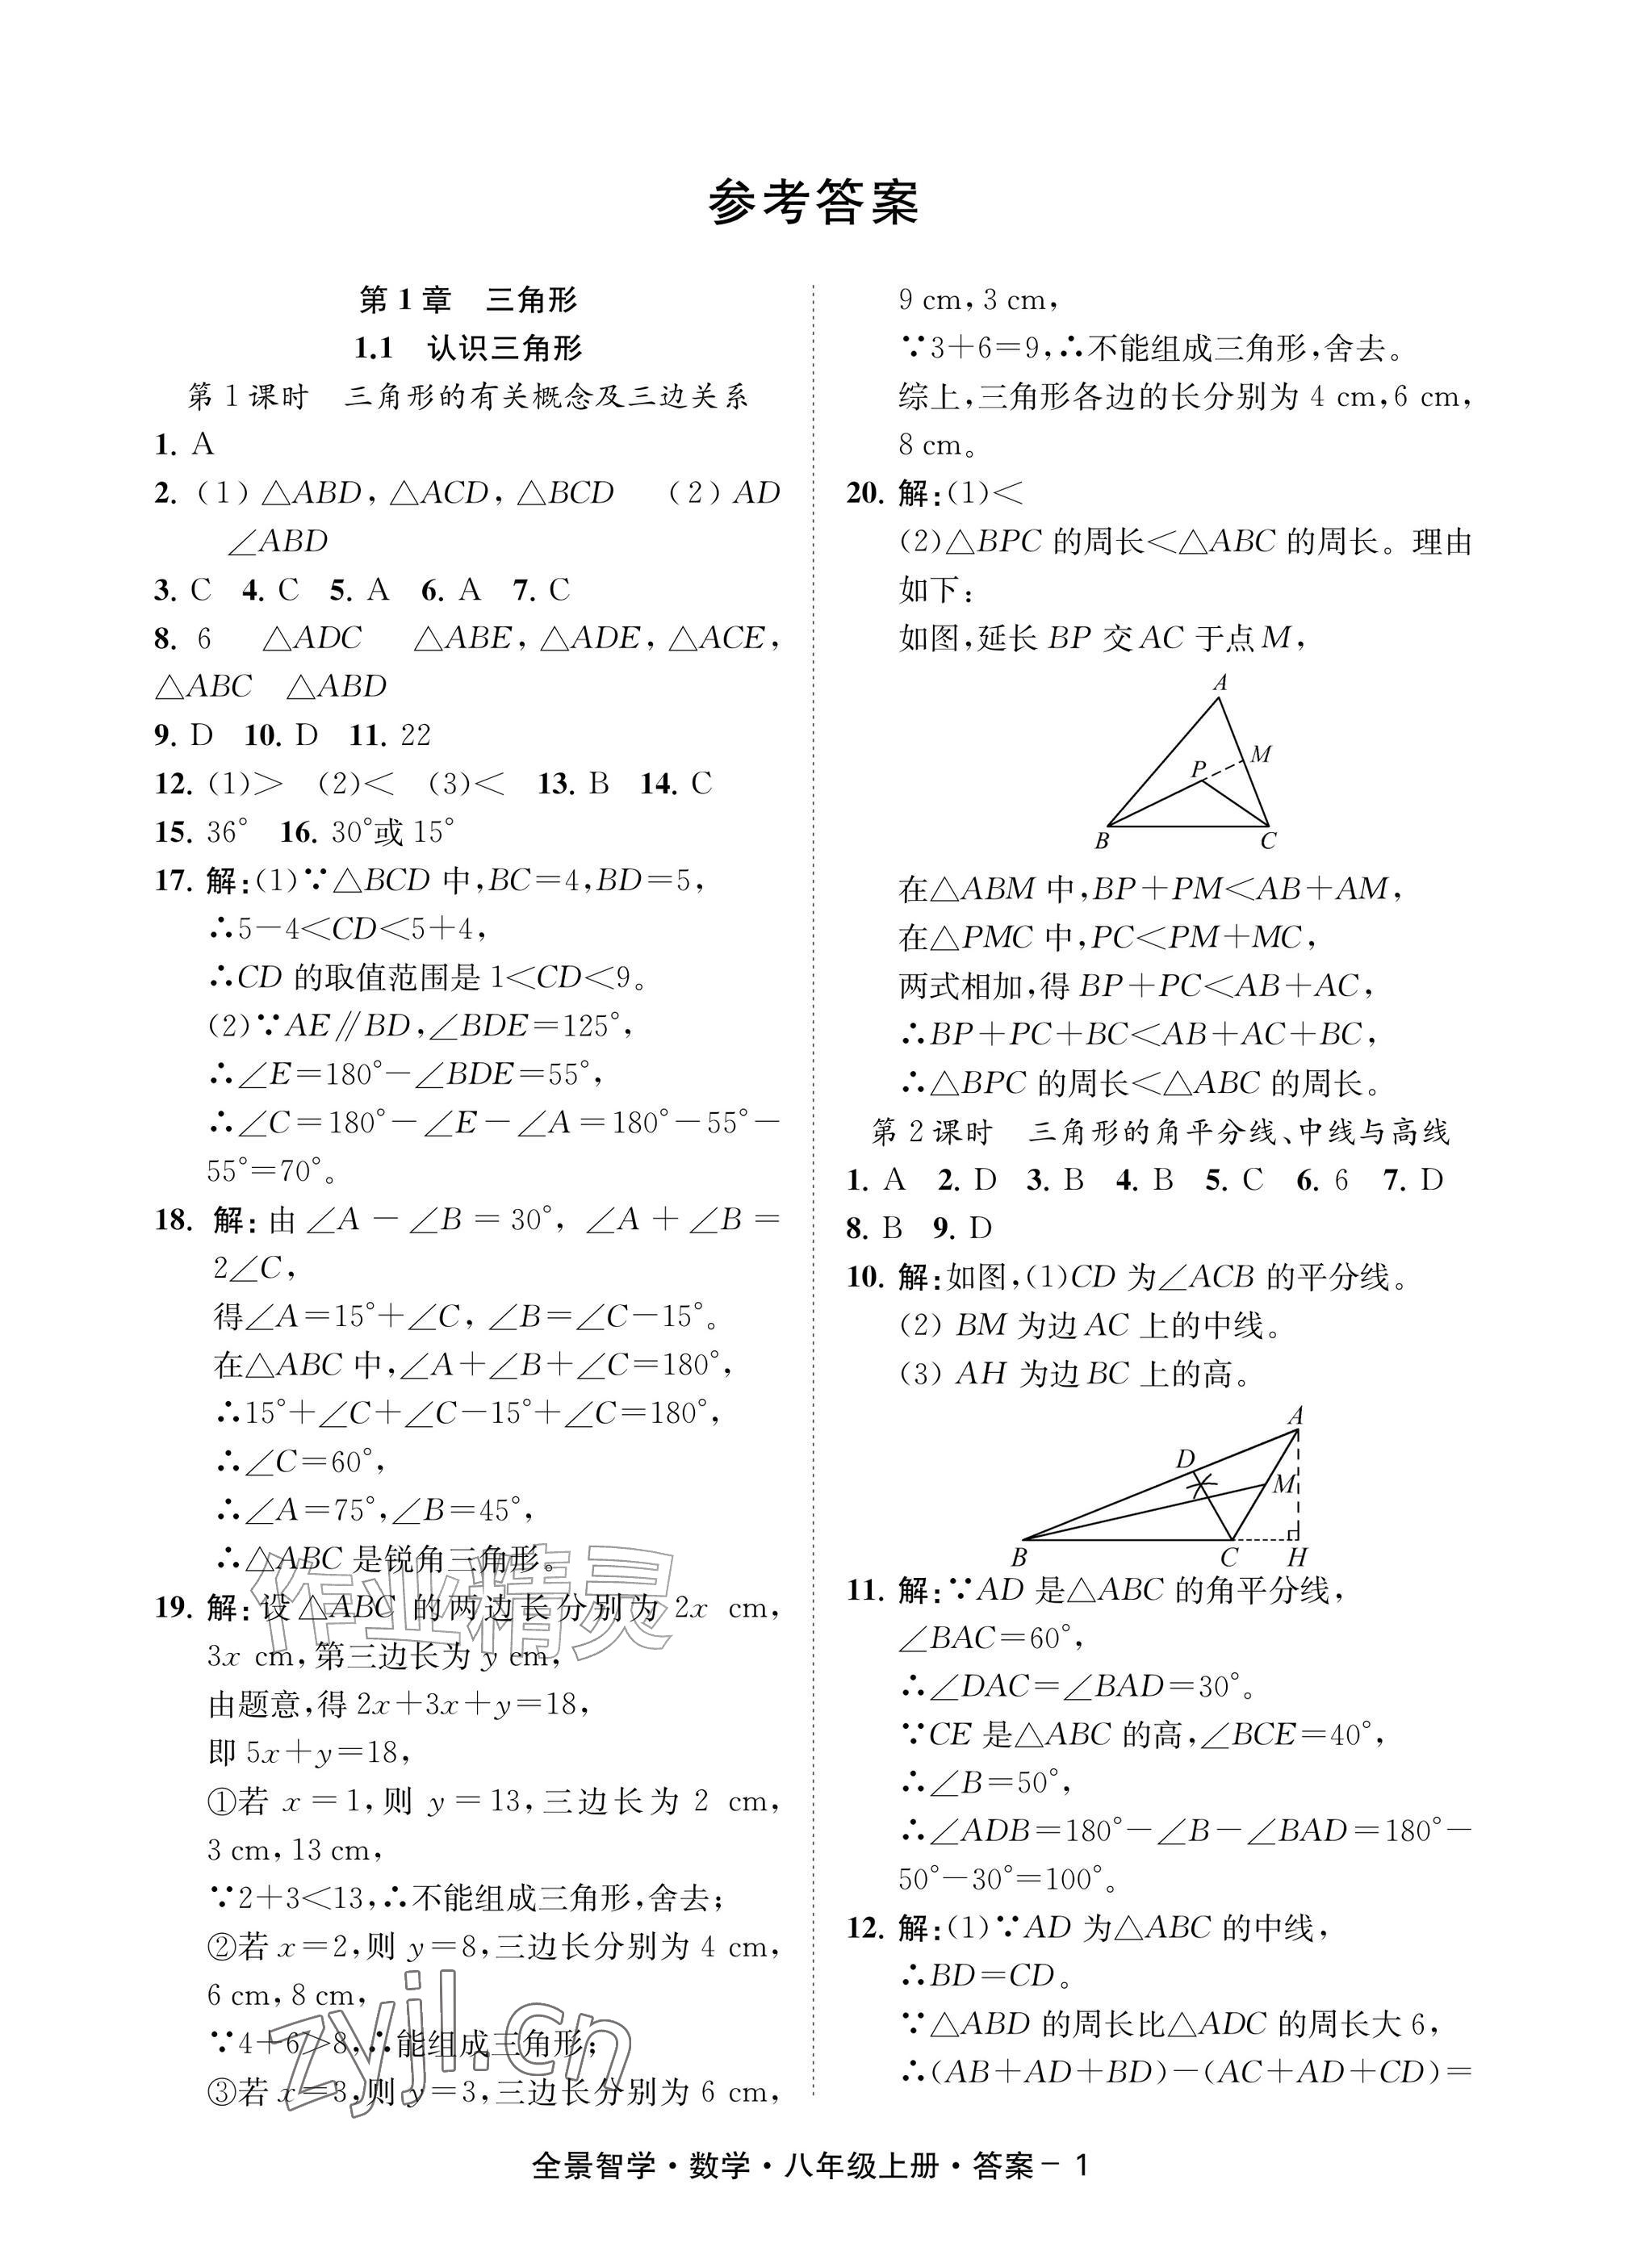 参考答案
第1章　三角形
1.1　认识三角形
第1课时　三角形的有关概念及三边关系
1. A
2. (1)△ABD,△ACD,△BCD　(2)AD
∠ABD
3. C　4. C　5. A　6. A　7. C
8. 6　△ADC　△ABE,△ADE,△ACE,
△ABC　△ABD
9. D　10. D　11. 22
12. (1)>　(2)<　(3)<　13. B　14. C
15. 36°　16. 30°或15°
17. 解:(1)∵△BCD中,BC=4,BD=5,
∴5-4<CD<5+4,
∴CD的取值范围是1<CD<9。
(2)∵AE∥BD,∠BDE=125°,
∴∠E=180°-∠BDE=55°,
∴∠C=180°-∠E-∠A=180°-55°-
55°=70°。
18. 解:由∠A-∠B=30°,∠A+∠B=
2∠C,
得∠A=15°+∠C,∠B=∠C-15°。
在△ABC中,∠A+∠B+∠C=180°,
∴15°+∠C+∠C-15°+∠C=180°,
∴∠C=60°,
∴∠A=75°,∠B=45°,
∴△ABC是锐角三角形。
19. 解:设△ABC的两边长分别为2x cm,
3x cm,第三边长为y cm,
由题意,得2x+3x+y=18,
即5x+y=18,
①若x=1,则y=13,三边长为2 cm,
3 cm,13 cm,
∵2+3<13,∴不能组成三角形,舍去;
②若x=2,则y=8,三边长分别为4 cm,
6 cm,8 cm,
∵4+6>8,∴能组成三角形;
③若x=3,则y=3,三边长分别为6 cm,
9 cm,3 cm,
∵3+6=9,∴不能组成三角形,舍去。
综上,三角形各边的长分别为4 cm,6 cm,
8 cm。
20. 解:(1)<
(2)△BPC的周长<△ABC的周长。理由
如下:
如图,延长BP交AC于点M,
A
M
P
B
C
在△ABM中,BP+PM<AB+AM,
在△PMC中,PC<PM+MC,
两式相加,得BP+PC<AB+AC,
∴BP+PC+BC<AB+AC+BC,
∴△BPC的周长<△ABC的周长。
第2课时　三角形的角平分线、中线与高线
1. A　2. D　3. B　4. B　5. C　6. 6　7. D
8. B　9. D
10. 解:如图,(1)CD为∠ACB的平分线。
(2)BM为边AC上的中线。
(3)AH为边BC上的高。
A
D
M
B
C
H
11. 解:∵AD是△ABC的角平分线,
∠BAC=60°,
∴∠DAC=∠BAD=30°。
∵CE是△ABC的高,∠BCE=40°,
∴∠B=50°,
∴∠ADB=180°-∠B-∠BAD=180°-
50°-30°=100°。
12. 解:(1)∵AD为△ABC的中线,
∴BD=CD。
∵△ABD的周长比△ADC的周长大6,
∴(AB+AD+BD)-(AC+AD+CD)=
作业精灵
zyjl.cn
全景智学·数学·八年级上册·答案- 1